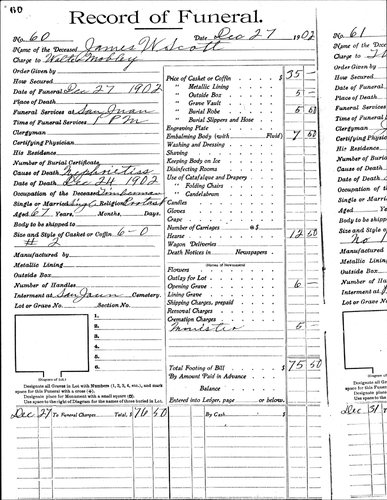 60
Record of Funeral.
No. 60 Date Dec 27 1902
Name of the Deceased James W Scott
Charge to Walter Mobley
Order Given by
How Secured
Date of Funeral Dec 27 1902
Place of Death
Funeral Services at San Juan
Time of Funeral Services 1 PM
Clergyman
Certifying Physician
His Residence
Number of Burial Certificate
Cause of Death
Date of Death Dec 24 1902
Occupation of the Deceased
Single or Married Single Religion
Aged 67 Years, Months, Days.
Body to be shipped to
Size and Style of Casket or Coffin 6-0
# 2
Manufactured by
Metallic Lining
Outside Box
Number of Handles
Interment at San Juan Cemetery.
Lot or Grave No. Section No.
1.
2.
3.
4.
5.
6.
(Diagram of Lot.)
Designate all Graves in Lot with Numbers (1, 2, 3, etc.), and mark
space for this Funeral with a cross (+).
Designate place for Monument with a small square (□).
Use space to the right of Diagram for the names of those buried in Lot.
Price of Casket or Coffin $ 35 —
" Metallic Lining
" Outside Box 5 —
" Grave Vault
" Burial Robe 5
" Burial Slippers and Hose
Engraving Plate
Embalming Body (with Fluid) 7
Washing and Dressing
Shaving
Keeping Body on Ice
Disinfecting Rooms
Use of Catafalque and Drapery
" Folding Chairs
" Candelabrum
Candles
Gloves
Crape
Number of Carriages @ $
Hearse 12 50
Wagon Deliveries
Death Notices in Newspapers
(Names of Newspapers)
Flowers
Outlay for Lot
Opening Grave 6 —
Lining Grave
Shipping Charges, prepaid
Removal Charges
Cremation Charges
Minister 5 —
Total Footing of Bill $ 75 50
By Amount Paid in Advance
Balance
Entered into Ledger, page or below.
Dec 27 To Funeral Charges Total, $ 76 50 By Cash $
No. 61
Name of the
Charge to
Order Given
Date of Fun
Place of Dea
Funeral Serv
Time of Fun
Clergyman
Certifying Ph
His Resid
Number of B
Cause of Dea
Date of Deat
Occupation of
Single or Mar
Aged
Body to be shi
Size and Style
No 1
Manufactured
Metallic Linin
Outside Box
Number of H
Interment at
Lot or Grave
Designate all G
space for this Fune
Designate place
Use space to the ri
Dec 31